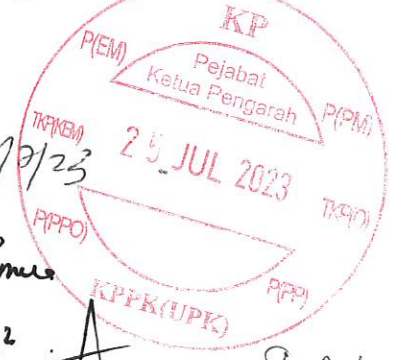 KP
P(EM)
Pejabat
Ketua Pengarah
P(PM)
TKP(KEM)
25 JUL 2023
TKP(O)
/7/23
P(PPO)
P(PP)
KPPK(UPK)